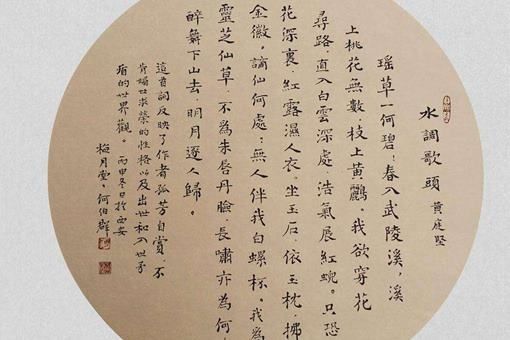 水調歌頭 黄庭堅
瑶草一何碧！春入武陵溪，溪
上桃花無數，枝上黄鸝。我欲穿花
尋路，直入白雲深處，浩氣展紅蜺。只恐
花深裏，紅露濕人衣。坐玉石，依玉枕，拂
金徽，謫仙何處，無人伴我白螺杯。我為
靈芝仙草，不為朱唇丹臉，長嘯亦為何
醉舞下山去，明月逐人歸。
這首詞反映了作者孤芳自賞，不
肯媚世求榮的性格以及出世和入世矛
盾的世界觀。丙申冬日於西安
梅月堂，何伯群